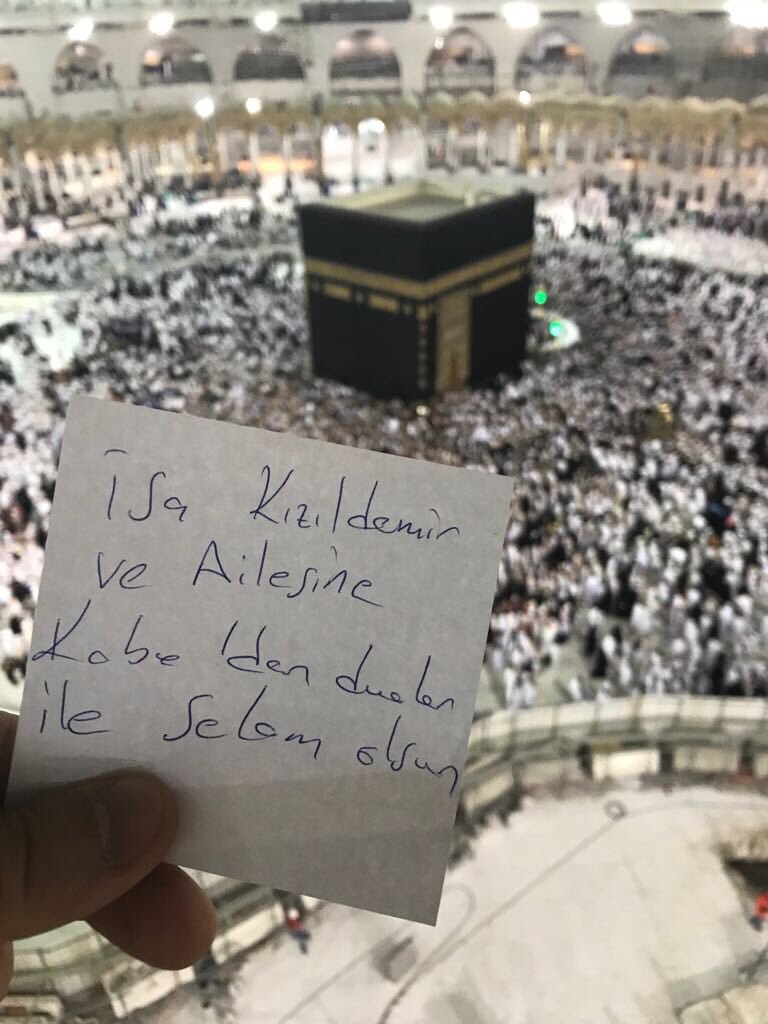 İsa Kızıldemir
ve Ailesine
Kabe'den dualar
ile Selam olsun